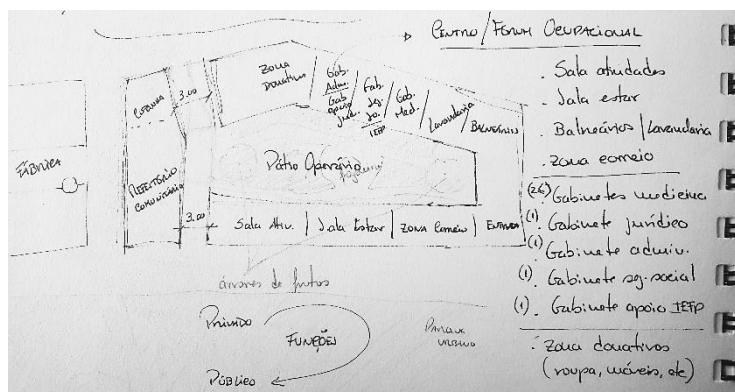 CENTRO / FORUM OCUPACIONAL
. Sala atividades
. Sala estar
. Balneários / Lavandaria
. Zona correio
Gabinetes medicina
(1). Gabinete jurídico
(1) Gabinete admin.
(1). Gabinete seg. social
(1). Gabinete apoio IEFP
. Zona donativos
(roupa, móveis, etc)
FÁBRICA
COZINHA
3.00
REFEITÓRIO
COMUNITÁRIO
3.00
ZONA
DONATIVOS
Gab.
Adm.
Gab
apoio
jurd.
Gab.
Seg.
So.
IEFP
Gab.
Med.
Lavandaria
BALNEÁRIO
Pátio Operário
Sala Ativ. / Sala Estar / ZONA Correio / ENTRADA
árvores de frutos
PRIVADO
FUNÇÕES
PÚBLICO
PARQUE
URBANO